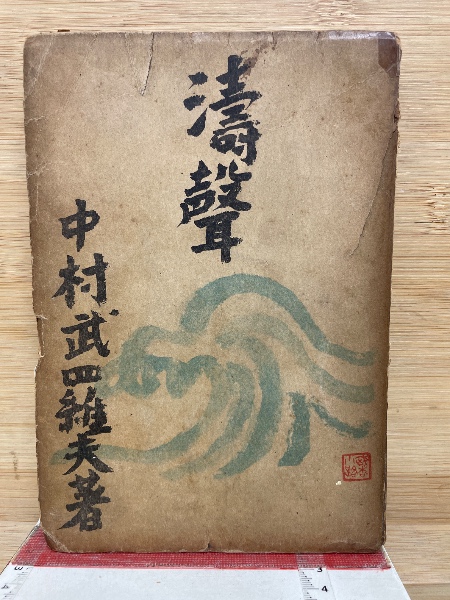 濤聲
中村武羅夫著
3
4